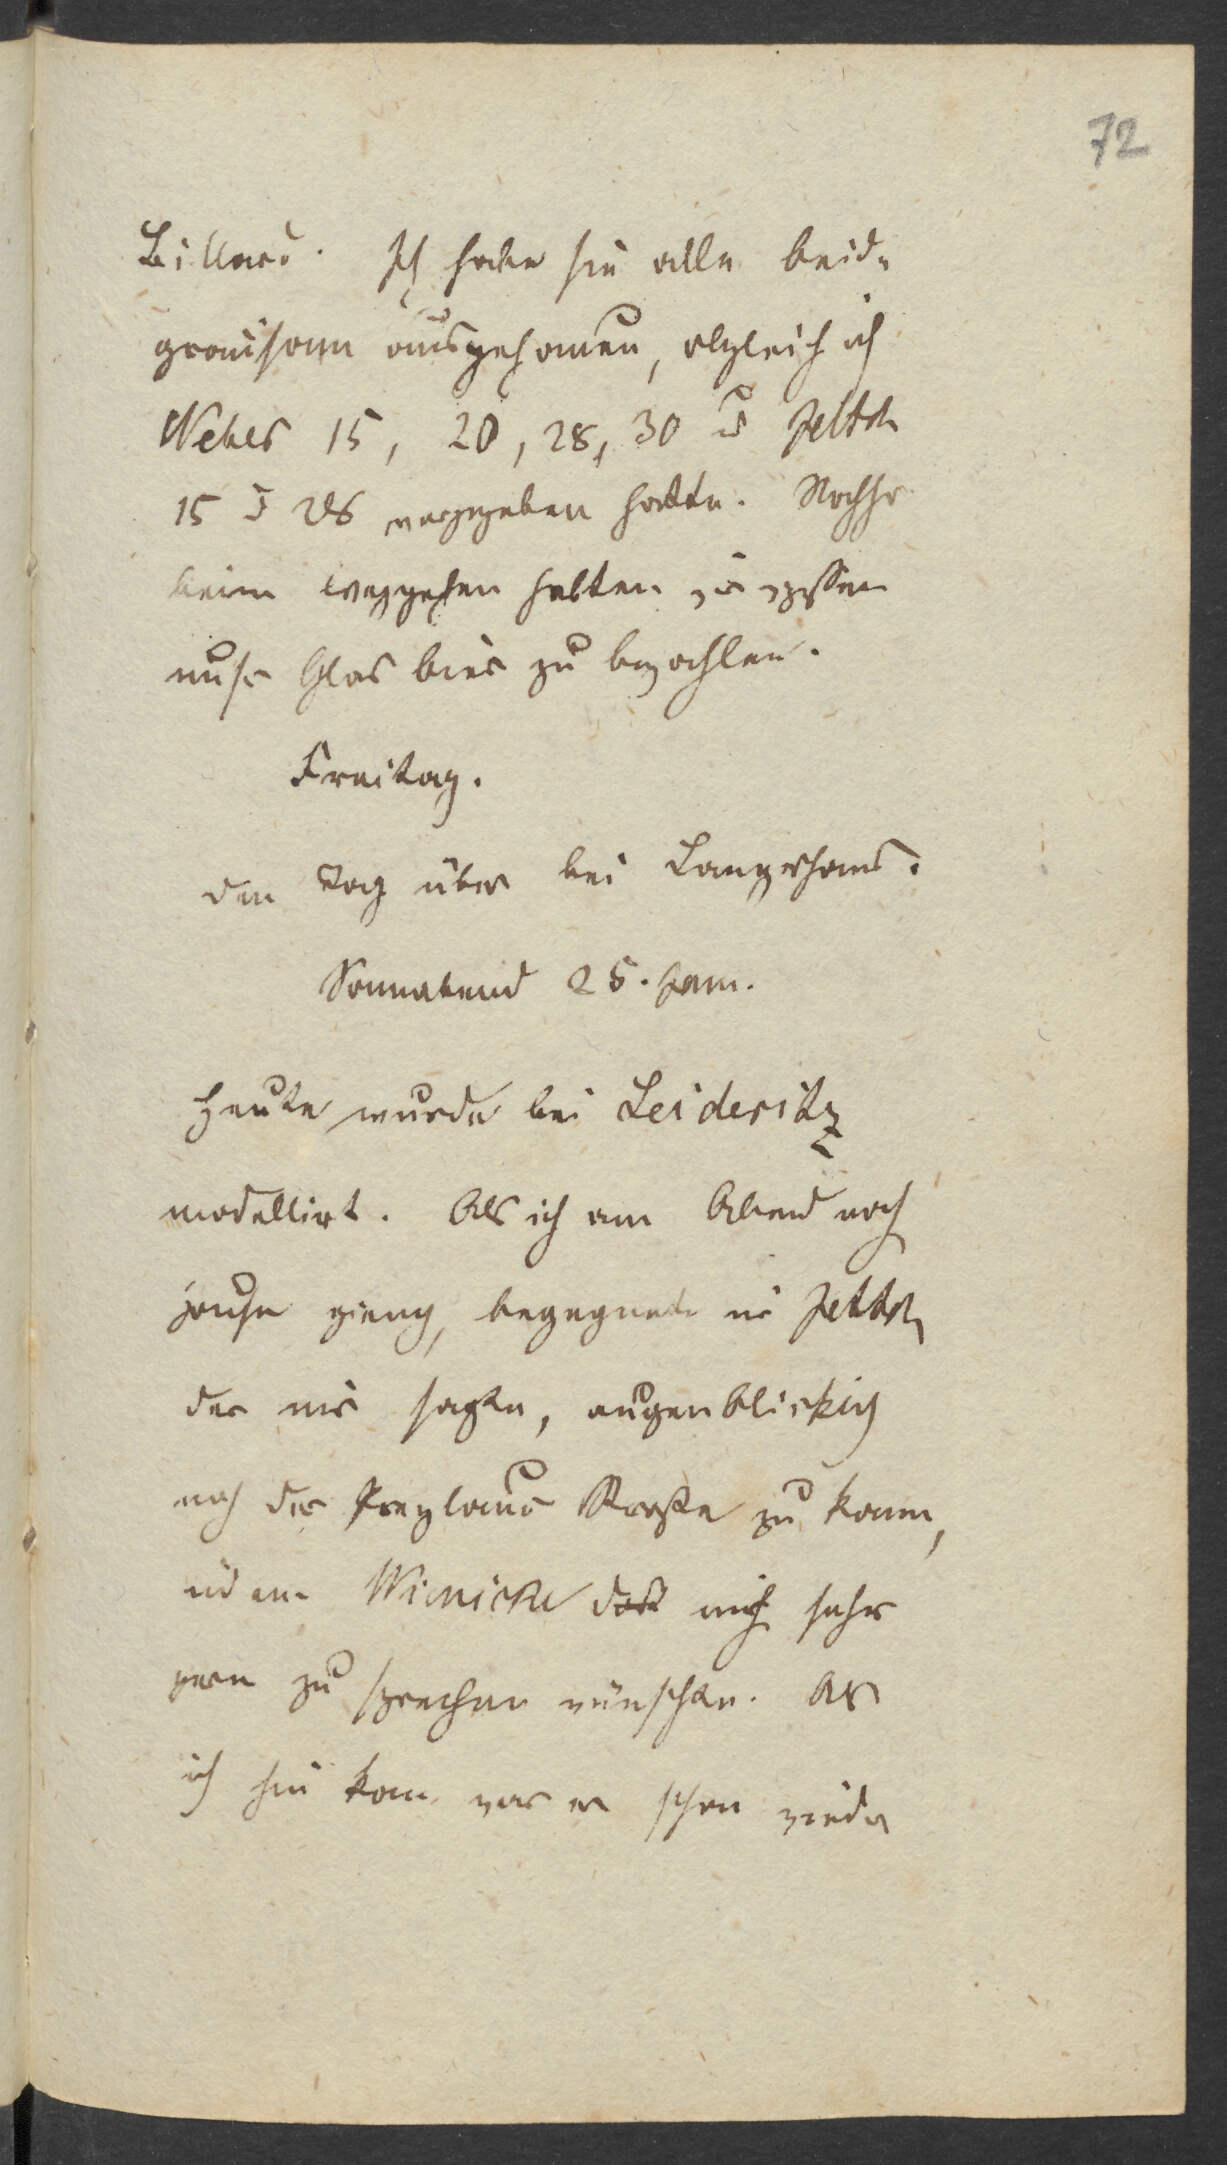 72
Billard. Ich habe sie alle beide
grausam ausgehauen, obgleich ich
Weber 15, 20, 28, 30 u Jettch
15 u 28 vorgegeben hatte. Nachher
beim weggehen hatten wir vergessen
unser Glas bier zu bezahlen.
Freitag.
den Tag über bei Langerhans.
Sonnabend 25. Jan.
Heute wurde bei Leideritz
modellirt. Als ich am Abend nach
hause gieng, begegnete mir Jettch
der mir sagte, augenblicklich
nach der Prenzlauer Straße zu kommen,
indem Wienicke dort mich sehr
gern zu sprechen wünschte. Als
ich hin kam war er schon wieder